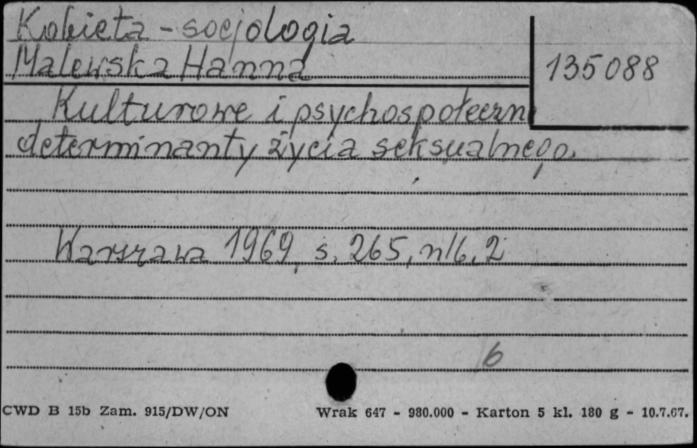 Kobieta - socjologia
Malewska Hanna
135088
Kulturowe i psychospołeczn
determinanty życia seksualnego.
Warszawa 1969, s. 265, nlb. 2
6
CWD B 15b Zam. 915/DW/ON Wrak 647 - 980.000 - Karton 5 kl. 180 g - 10.7.67.